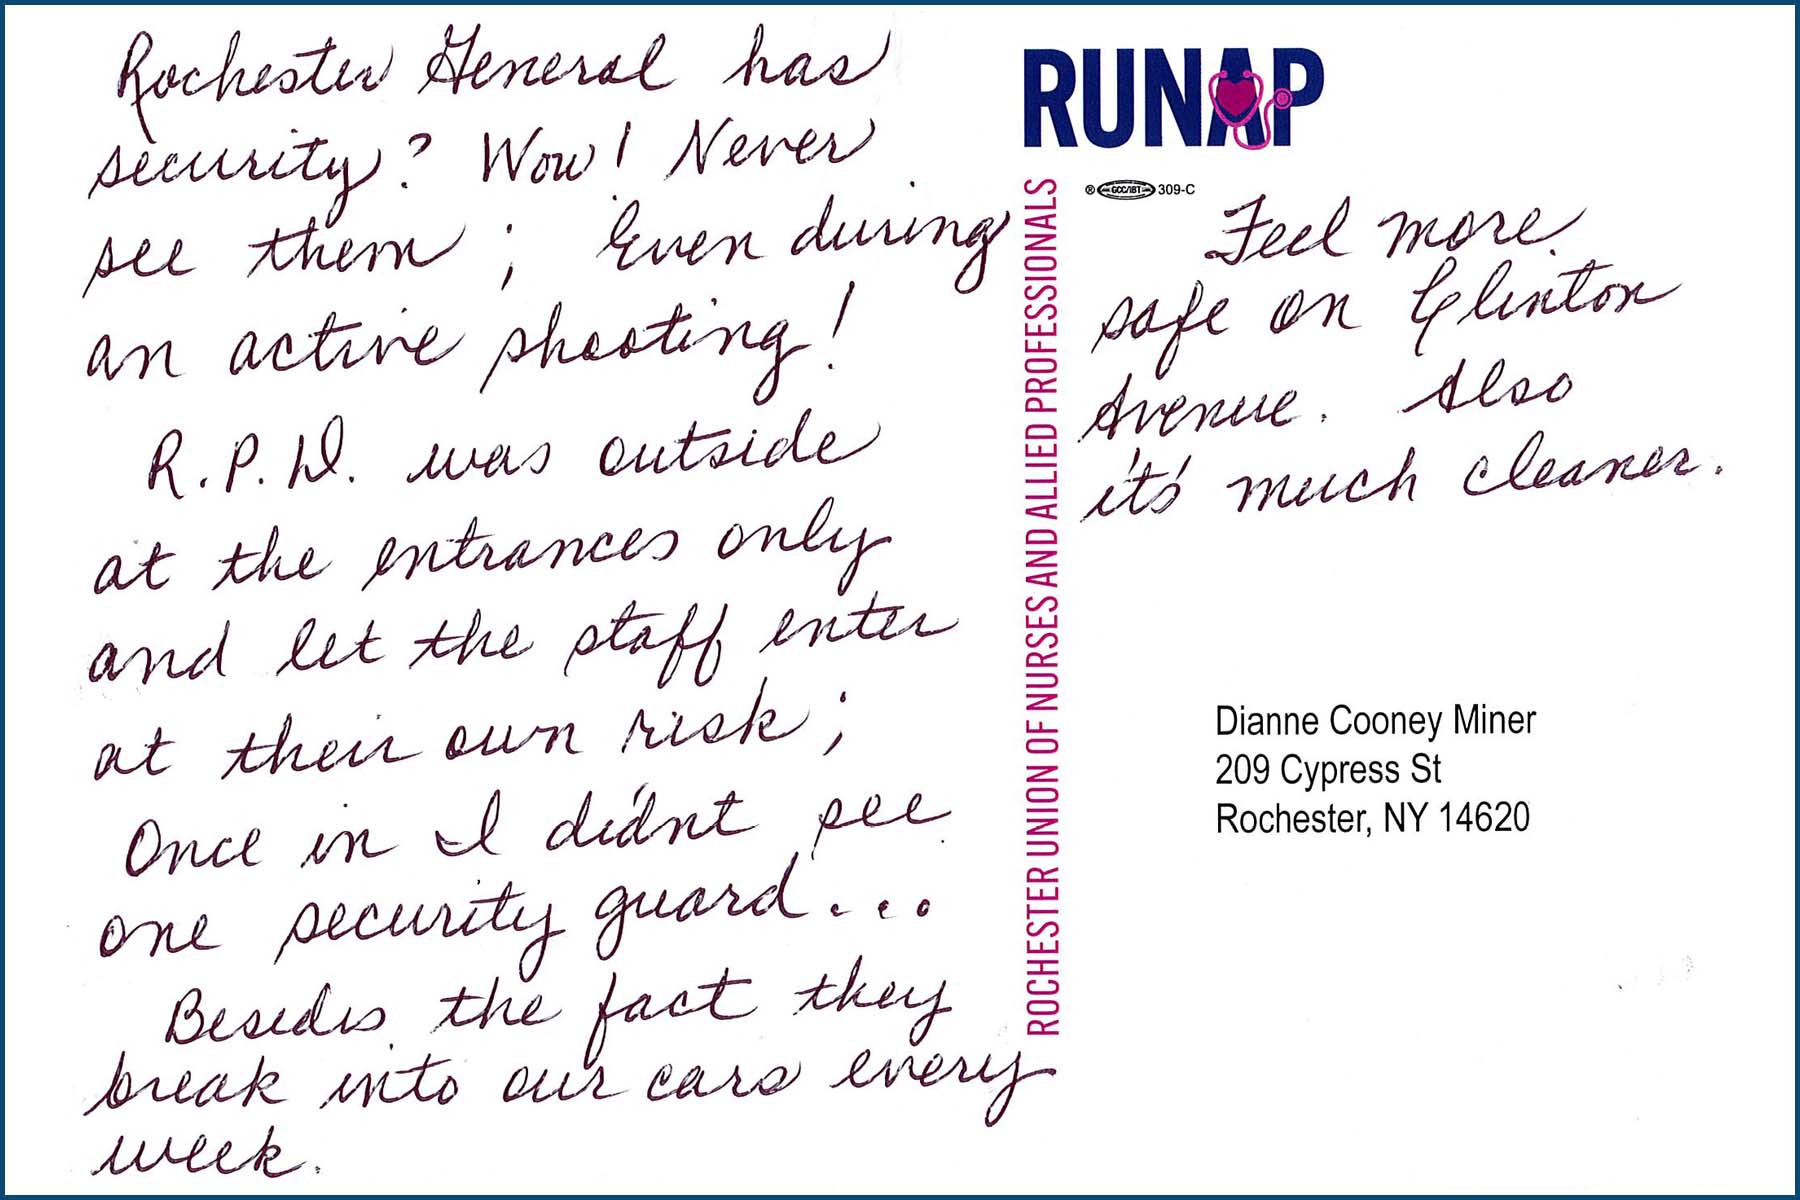 Rochester General has
security? Wow! Never
see them; Even during
an active shooting!
R.P.D. was outside
at the entrances only
and let the staff enter
at their own risk;
Once in I didn't see
one security guard...
Besides the fact they
break into our cars every
week.
RUNAP
® GCC/IBT 309-C
ROCHESTER UNION OF NURSES AND ALLIED PROFESSIONALS
Feel more
safe on Clinton
Avenue. Also
it's much cleaner.
Dianne Cooney Miner
209 Cypress St
Rochester, NY 14620